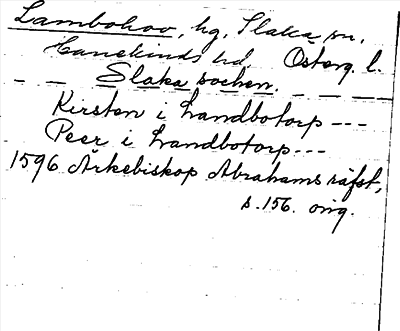 Lambohov, hg, Slaka sn,
Hanekinds hd, Österg. l.
— — Slaka sochen. — — — —
Kirsten i Landbotorp ---
Peer i Landbotorp---
1596 Ärkebiskop Abrahams räfst,
s. 156. orig.